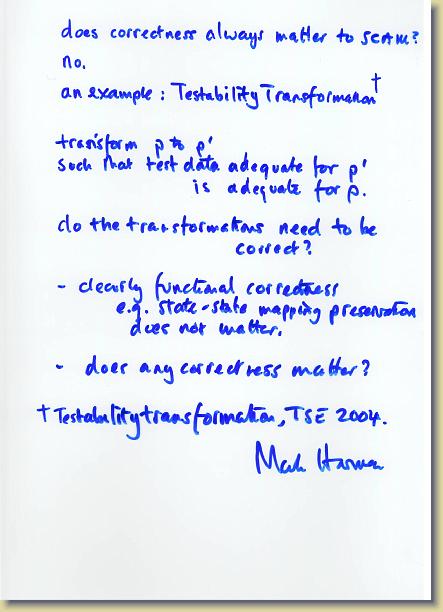 does correctness always matter to SCAM?
no.
an example : Testability Transformation†
transform p to p'
such that test data adequate for p'
is adequate for p.
do the transformations need to be
correct?
- clearly functional correctness
e.g. state-state mapping preservation
does not matter.
- does any correctness matter?
† Testability transformation, TSE 2004.
Mark Harman